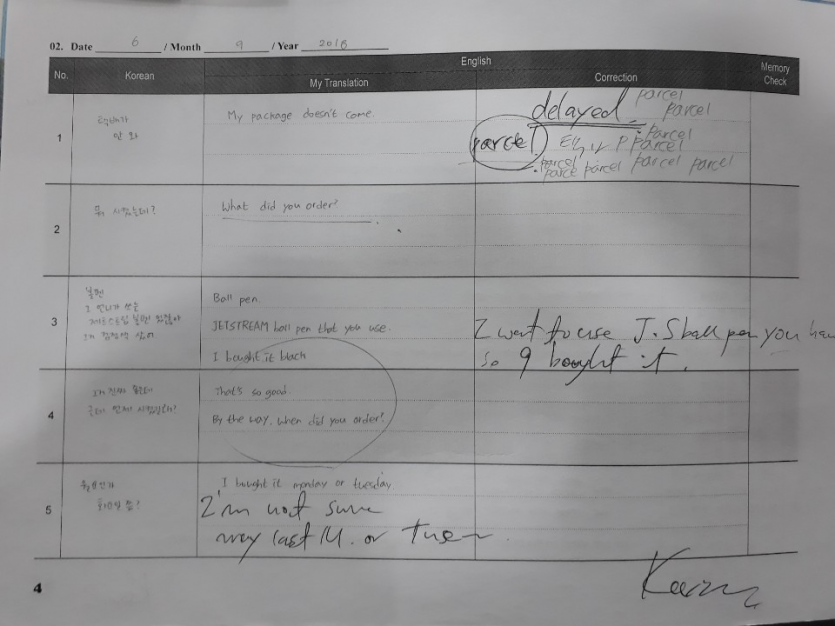 02. Date 6 / Month 9 / Year 2018
No. Korean English Memory Check
My Translation Correction
1 택배가 안 와
My package doesn't come.
delayed parcel parcel
parcel
parcel parcel
parcel parcel parcel parcel
2 뭐 시켰는데?
What did you order?
3 볼펜
Ball pen.
JETSTREAM ball pen that you use.
I bought it black
I want to use J.S ball pen you
so I bought it.
4
That's so good.
By the way, when did you order?
5 월요일인가 화요일 쯤?
I bought it monday or tuesday
I'm not sure
may last M. or Tues
4